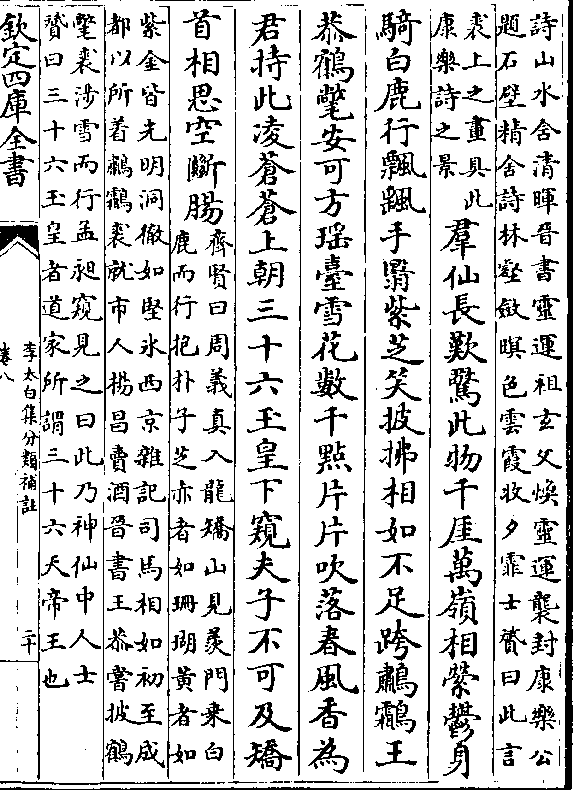 詩山水含清暉晉書靈運祖玄父煥靈運襲封康樂公
題石壁精舍詩林壑斂暝色雲霞收夕霏士贇曰此言
裘上之畫具此
康樂詩之景
羣仙長歎驚此物千厓萬嶺相縈鬱身
騎白鹿行飄颻手翳紫芝笑披拂相如不足跨鸕鷫王
恭鶴氅安可方瑶臺雪花數千㸃片片吹落春風香為
君持此凌蒼蒼上朝三十六玉皇下窺夫子不可及矯
首相思空斷腸
齊賢曰周義真入龍矯山見羨門乗白
鹿而行抱朴子芝赤者如珊瑚黄者如
紫金皆光明洞徹如堅氷西京雜記司馬相如初至成
都以所着鷫鸘裘就市人楊昌賣酒晉書王恭嘗披鶴
氅裘涉雪而行孟昶窺見之曰此乃神仙中人士
贇曰三十六玉皇者道家所謂三十六天帝王也
欽定四庫全書
李太白集分類補註
卷八
二十